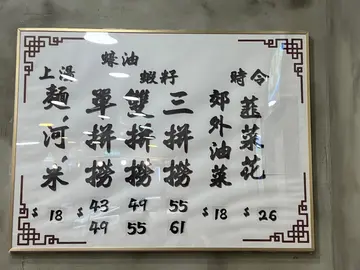 上湯
麵,河,米
$ 18
蠔油
蝦籽
單拼撈
$ 43
49
雙拼撈
49
55
三拼撈
55
61
郊外油菜
$ 18
時令
韮菜花
$ 26